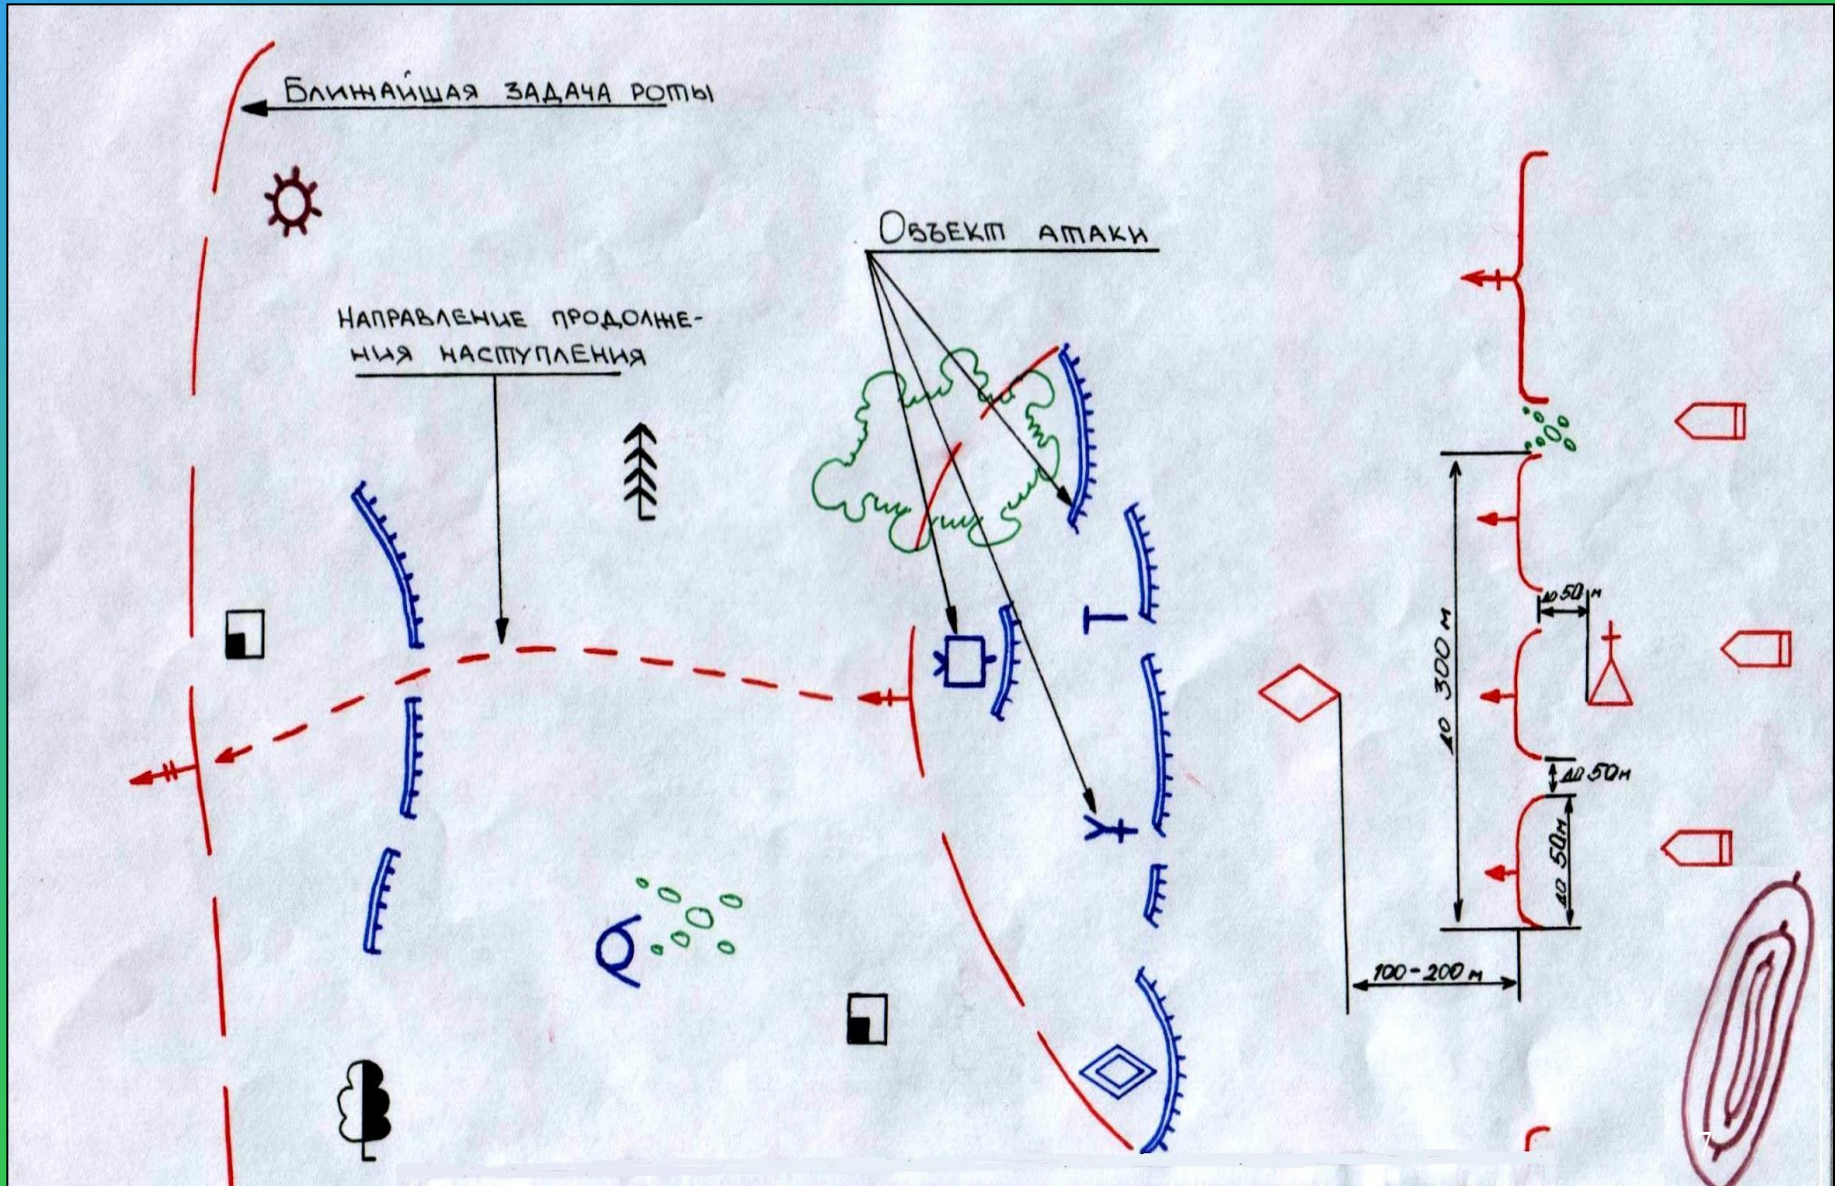 Ближайшая задача роты
Объект атаки
Направление продолже-
ния наступления
до 50 м
до 300 м
до 50 м
до 50 м
100-200 м
7